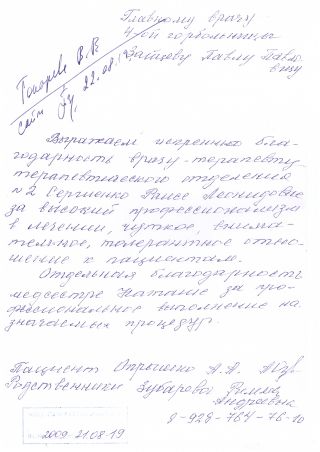 Главному врачу
4-ой горбольницы
Зайцеву Павлу Павло-
вичу
В. В.
сайт
22.08.19
Выражаем искреннюю бла-
годарность врачу-терапевту
терапевтического отделения
№2 Сергиенко Раисе Леонидовне
за высокий профессионализм
в лечении, чуткое, внима-
тельное, толерантное отно-
шение к пациентам.
Отдельная благодарность
медсестре Наташе за про-
фессиональное выполнение на
значаемых процедур.
Пациент Опрышко А.А.
Родственники Зубарова Римма
Андреевна
8-928-764-76-10
2009-21.08.19